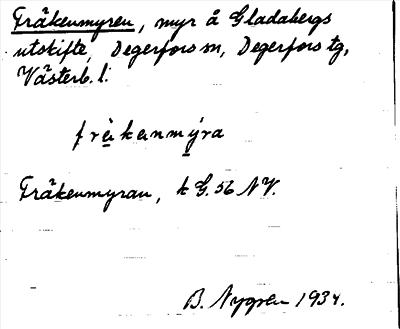 Fräkenmyren, myr å Gladabergs
utskifte, Degerfors sn, Degerfors tg,
Västerb. l.
frèkenmýra
Fräkenmyran, k G. 56 NV.
B. Nygren 1934.